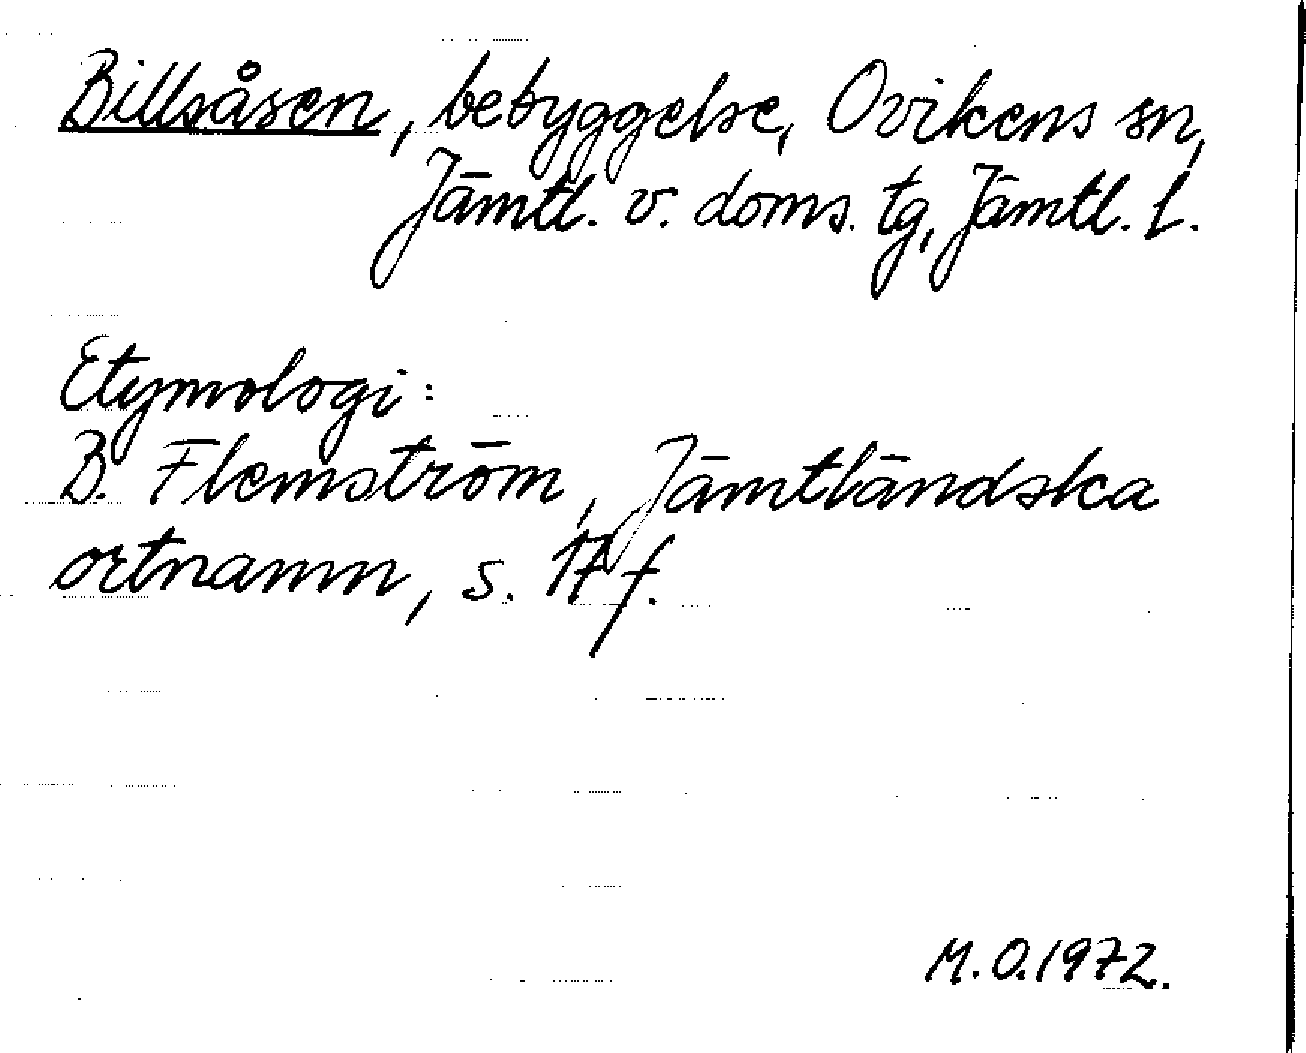 Billsåsen, bebyggelse, Ovikens sn,
Jämtl. v. doms. tg, Jämtl. l.
Etymologi:
B. Flemström, Jämtländska
ortnamn, s. 17 f.
M.O.1972.